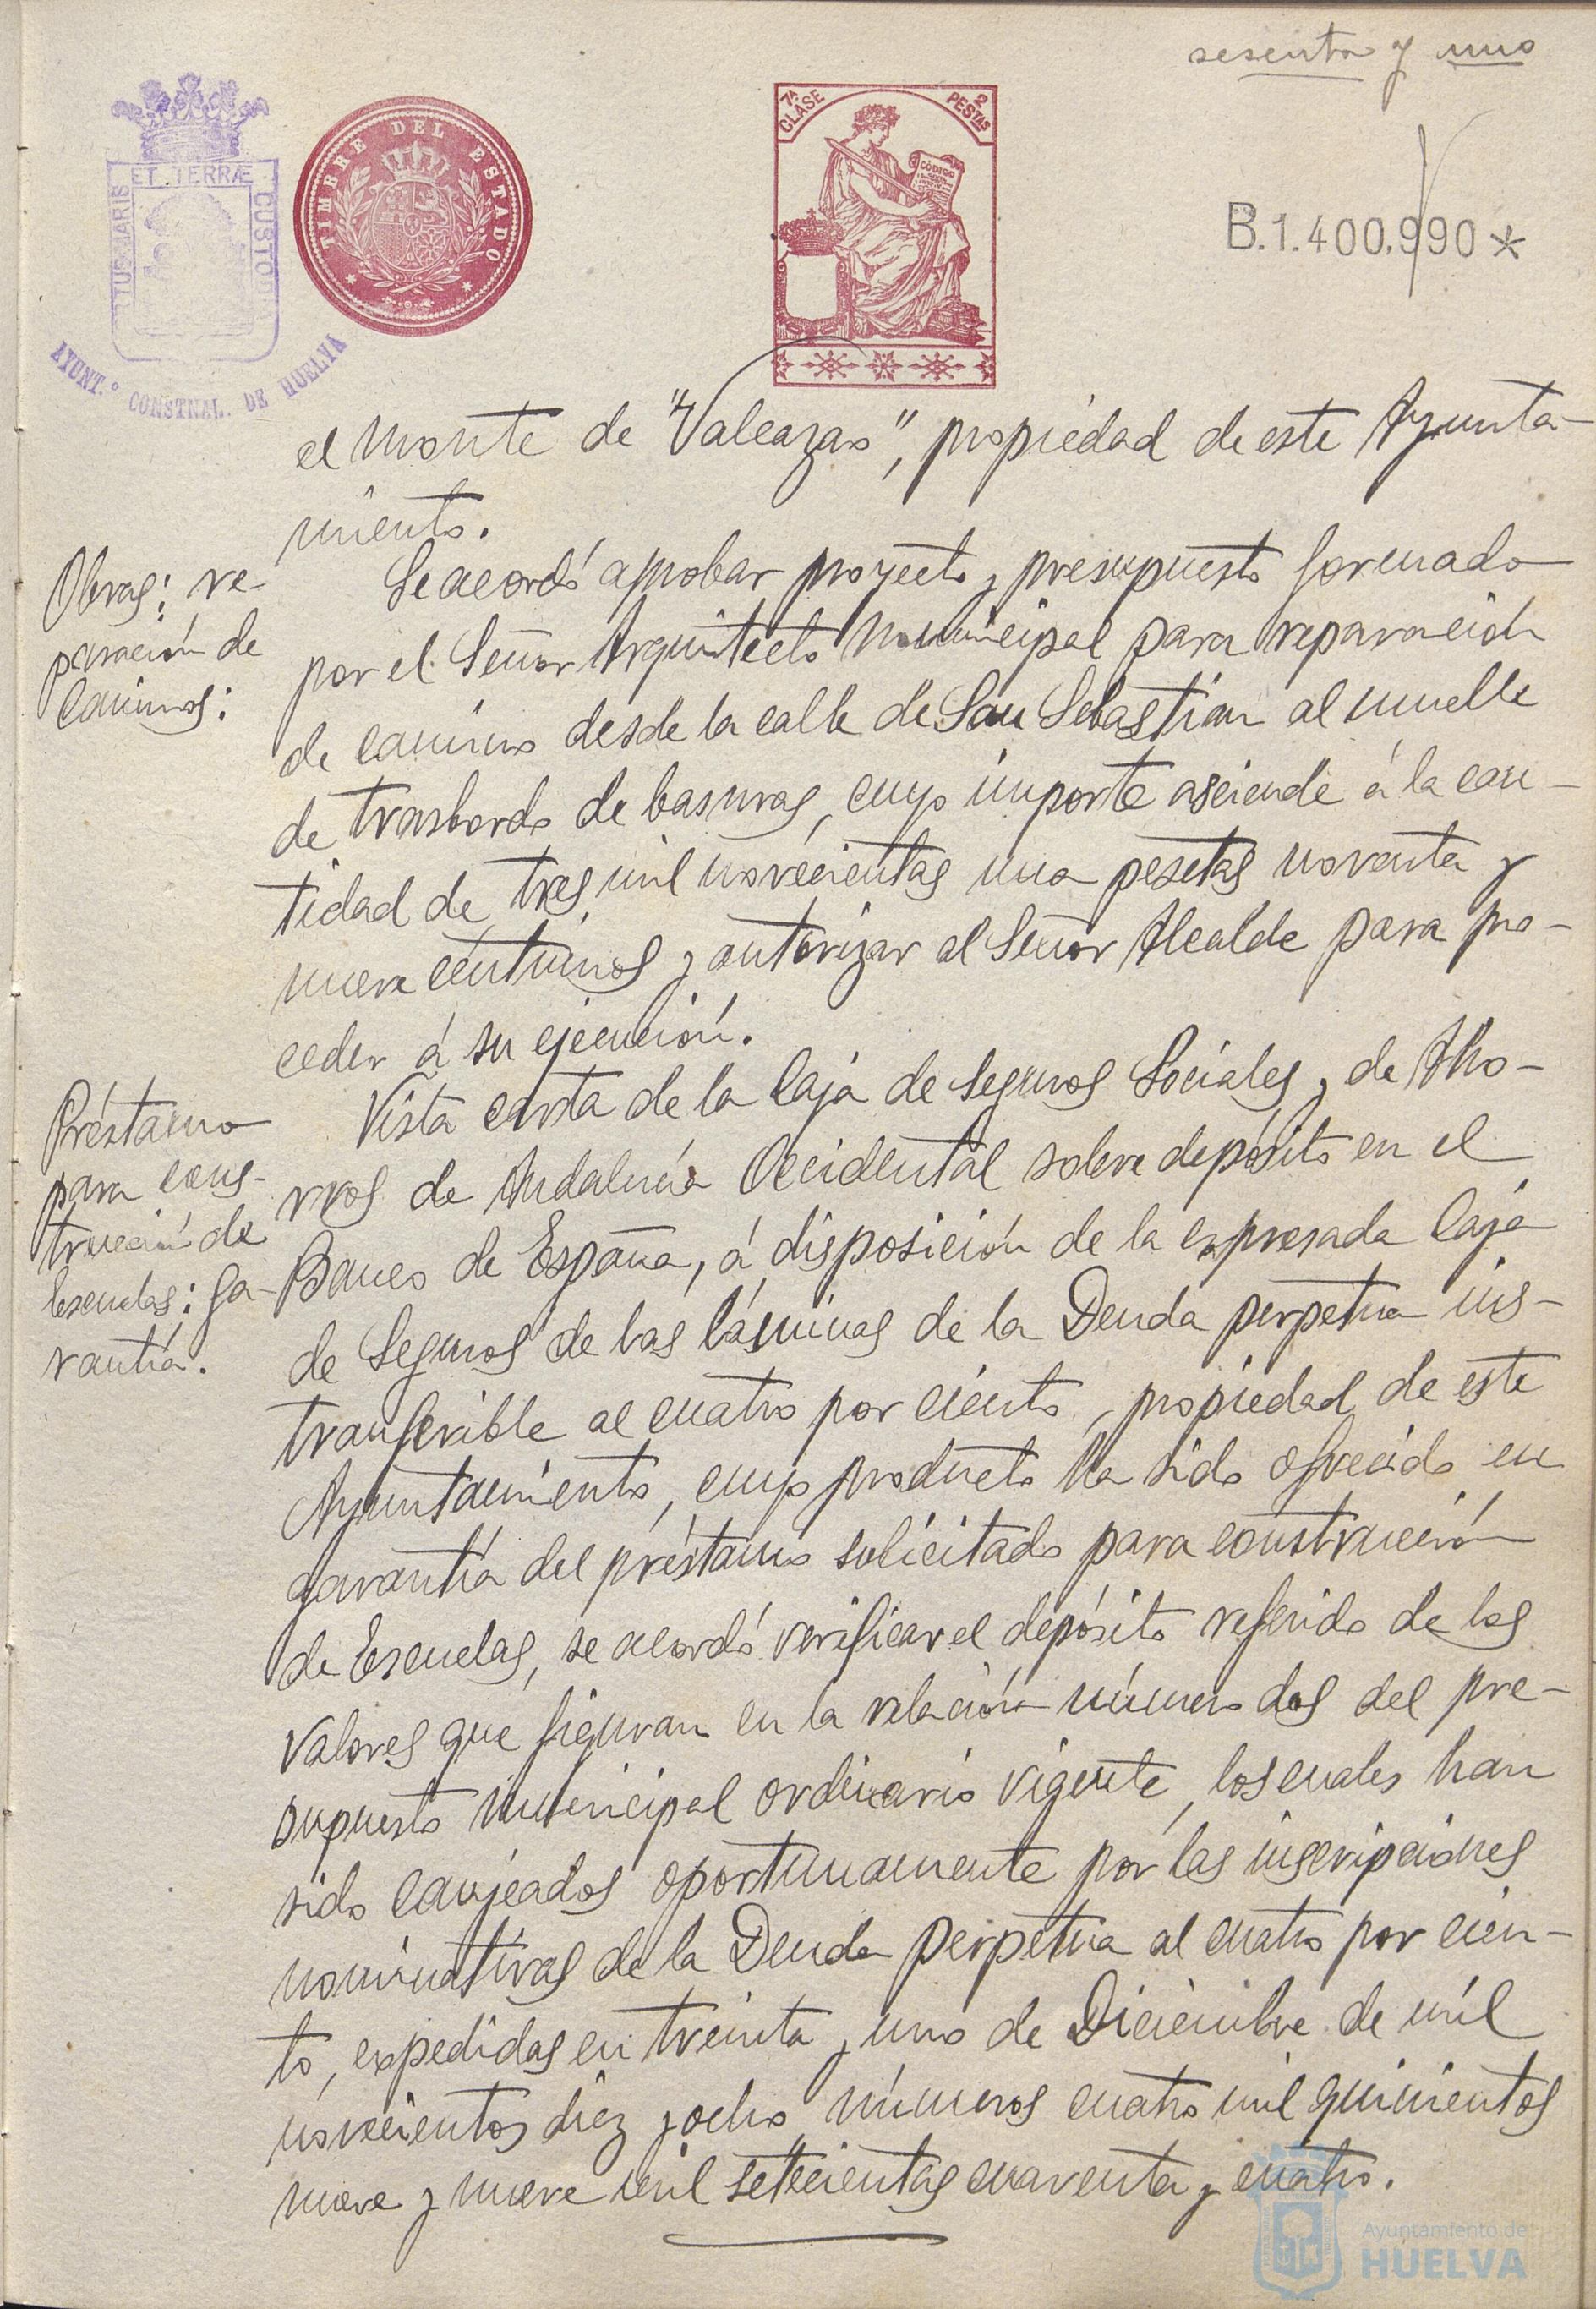 sesenta y uno
ET TERRÆ
TUS MARIS
CUSTO
AYUNT.º CONSTNAL. DE HUELVA
TIMBRE DEL ESTADO
7ª CLASE
2 PESTAS
CÓDIGO
B.1.400.990*
el monte de "Valcazas", propiedad de este Ayunta-
miento.
Obras; re-
paración de
caminos:
Se acordó aprobar proyecto y presupuesto formado
por el Señor Arquitecto Municipal para reparación
de camino desde la calle de San Sebastián al muelle
de trasbordo de basuras, cuyo importe asciende á la can-
tidad de tres mil novecientas una pesetas noventa y
nueve céntimos y autorizar al Señor Alcalde para pro-
ceder á su ejecución.
Préstamo
para cons-
trucción de
Escuelas: ga-
rantía.
Vista carta de la Caja de Seguros Sociales y de Aho-
rros de Andalucía Occidental sobre depósito en el
Banco de España, á disposición de la expresada Caja
de Seguros de las láminas de la Deuda perpetua ins-
transferible al cuatro por ciento, propiedad de este
Ayuntamiento, cuyo producto ha sido ofrecido en
garantía del préstamo solicitado para construcción
de Escuelas, se acordó verificar el depósito referido de los
valores que figuran en la relación número dos del pre-
supuesto municipal ordinario vigente, los cuales han
sido canjeados oportunamente por las inscripciones
nominativas de la Deuda perpetua al cuatro por cien-
to, expedidas en treinta y uno de Diciembre de mil
novecientos diez y ocho, números cuatro mil quinientos
nueve y nueve mil setecientas cuarenta y cuatro.
Ayuntamiento de
HUELVA